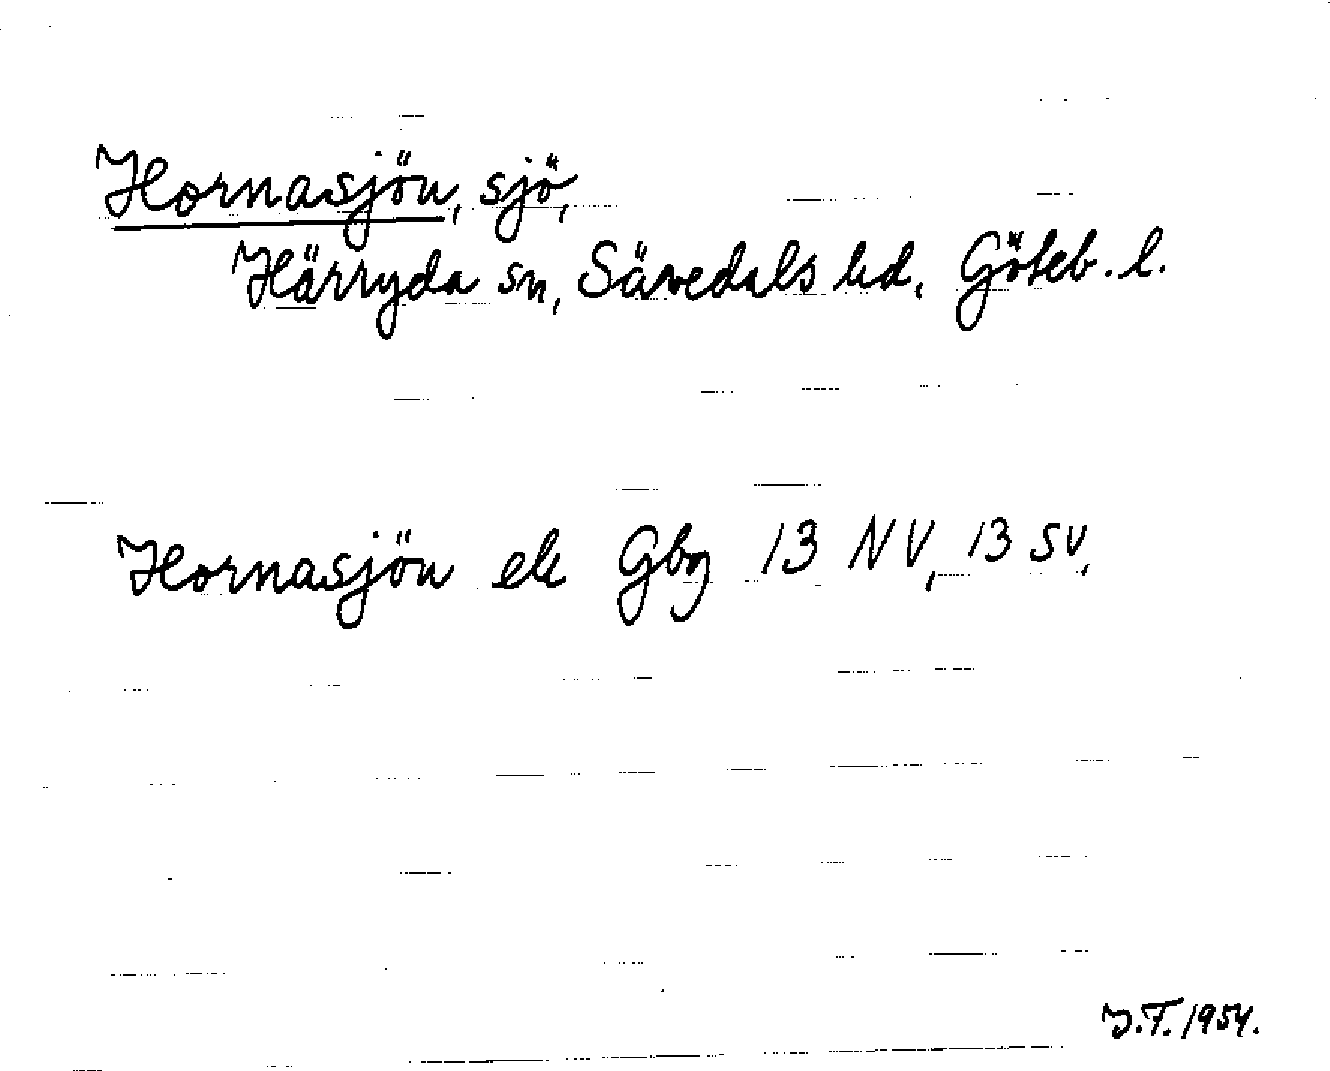 Hornasjön, sjö,
Härryda sn, Sävedals hd, Göteb. l.
Hornasjön ek Gbg 13 NV, 13 SV,
J.F. 1954.